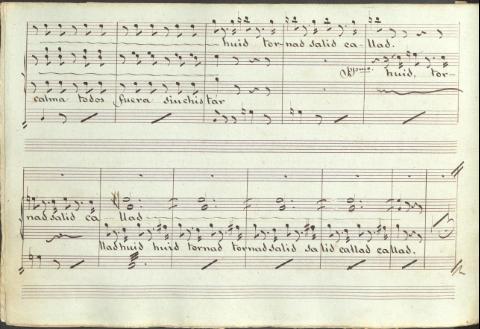 huid tornad salid callad.
ppmo. huid, tor-
calma todos fuera sin chistar
nad salid ca llad
llad huid huid tornad tornad salid salid callad callad.